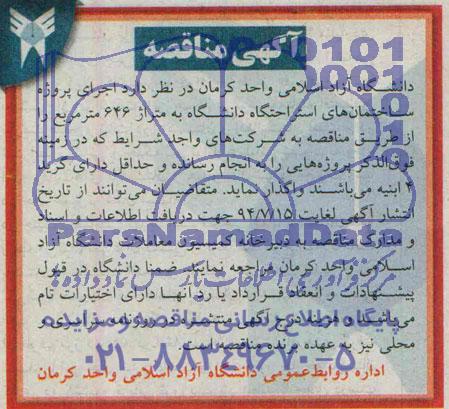 آگهی مناقصه
دانشگاه آزاد اسلامی واحد کرمان در نظر دارد اجرای پروژه
ساختمان‌های استراحتگاه دانشگاه به متراژ ۶۴۶ مترمربع را
از طریق مناقصه به شرکت‌های واجد شرایط که در زمینه
فوق‌الذکر پروژه‌هایی را به انجام رسانده و حداقل دارای گرید
۴ ابنیه می‌باشند واگذار نماید. متقاضیان می‌توانند از تاریخ
انتشار آگهی لغایت ۹۴/۷/۱۵ جهت دریافت اطلاعات و اسناد
و مدارک مناقصه به دبیرخانه کمیسیون معاملات دانشگاه آزاد
اسلامی واحد کرمان مراجعه نمایند. ضمنا دانشگاه در قبول
پیشنهادات و انعقاد قرارداد یا رد آنها دارای اختیارات تام
می‌باشد و هزینه درج آگهی منتشره در روزنامه سراسری و
محلی نیز به عهده برنده مناقصه است.
اداره روابط عمومی دانشگاه آزاد اسلامی واحد کرمان
ParsNamadData
پایگاه اطلاع رسانی مناقصه و مزایده
۰۲۱-۸۸۳۴۹۶۷۰-۵